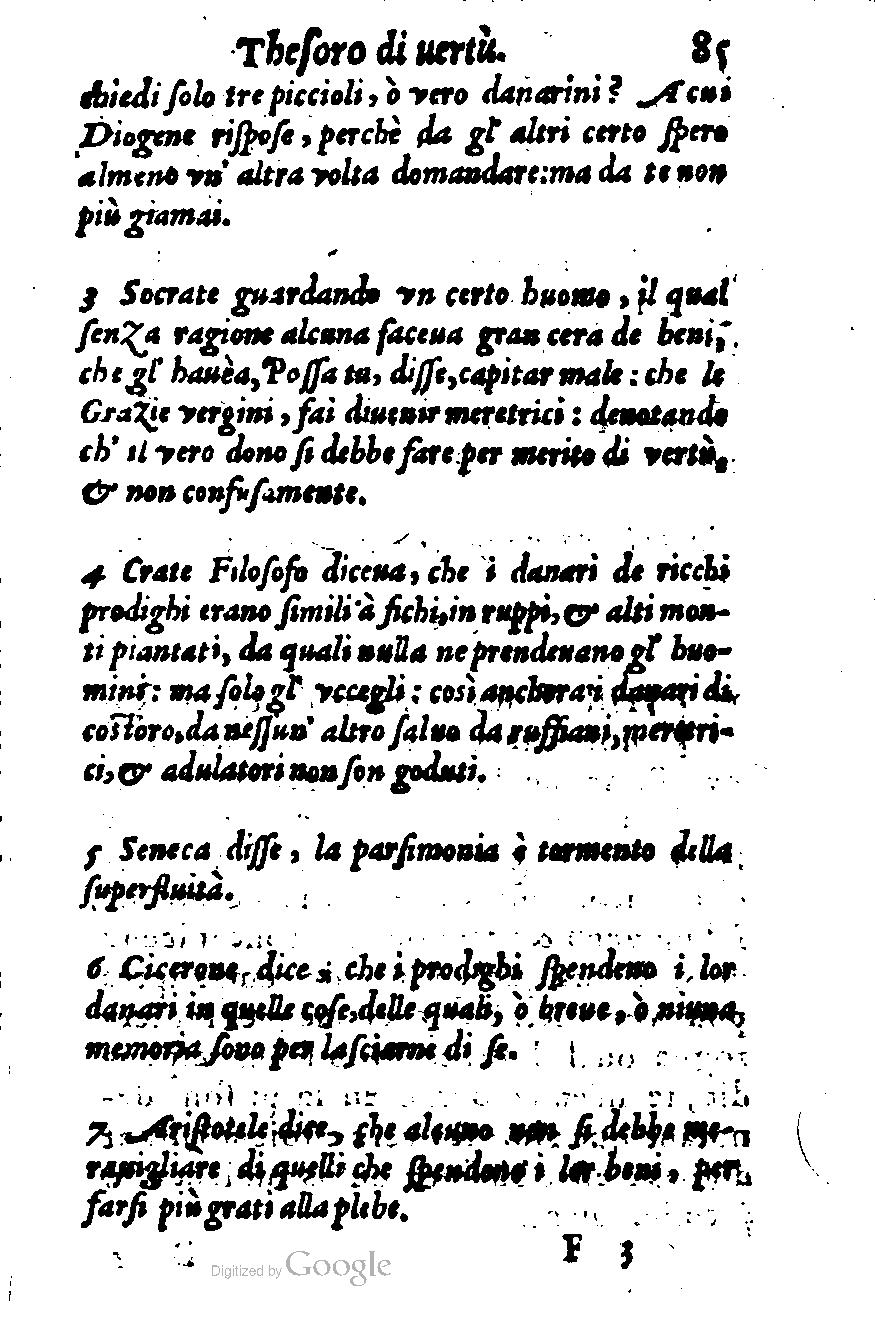 Theſoro di uertù. 85
chiedi ſolo tre piccioli, ò vero danarini? A cui
Diogene riſpoſe, perchè da gl' altri certo ſpero
almeno vn' altra volta domandare: ma da te non
più giamai.
3 Socrate guardando vn certo huomo, il qual
ſenza ragione alcuna faceua gran cera de beni,
che gl' hauèa, Poſſa tu, diſſe, capitar male: che le
Grazie vergini, fai diuenir meretrici: denotando
ch' il vero dono ſi debbe fare per merito di vertù,
& non confuſamente.
4 Crate Filoſofo diceua, che i danari de ricchi
prodighi erano ſimili à fichi, in ruppi, & alti mon-
ti piantati, da quali nulla ne prendeuano gl' huo-
mini: ma ſolo gl' vccegli: così anchora i danari di
coſtoro, da neſſun' altro ſaluo da ruffiani, meretri-
ci, & adulatori non ſon goduti.
5 Seneca diſſe, la parſimonia è tormento della
ſuperfluità.
6 Cicerone, dice, che i prodighi ſpendeno i lor
danari in quelle coſe, delle quali, ò breue, ò niuna
memoria ſono per laſciarne di ſe.
7 Ariſtotele dice, che alcuno non ſi debbe me-
rauigliare di quelli che ſpendono i lor beni, per
farſi più grati alla plebe.
F 3
Digitized by Google